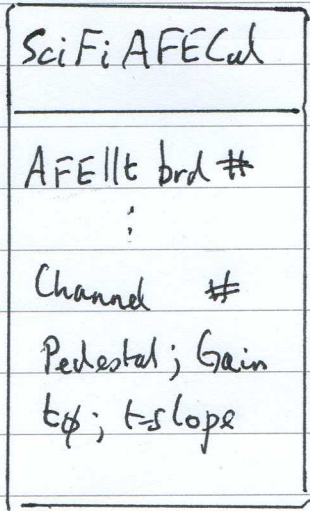 SciFi AFECal
AFEIIt brd #
⋮
Channel #
Pedestal; Gain
t0; t-slope